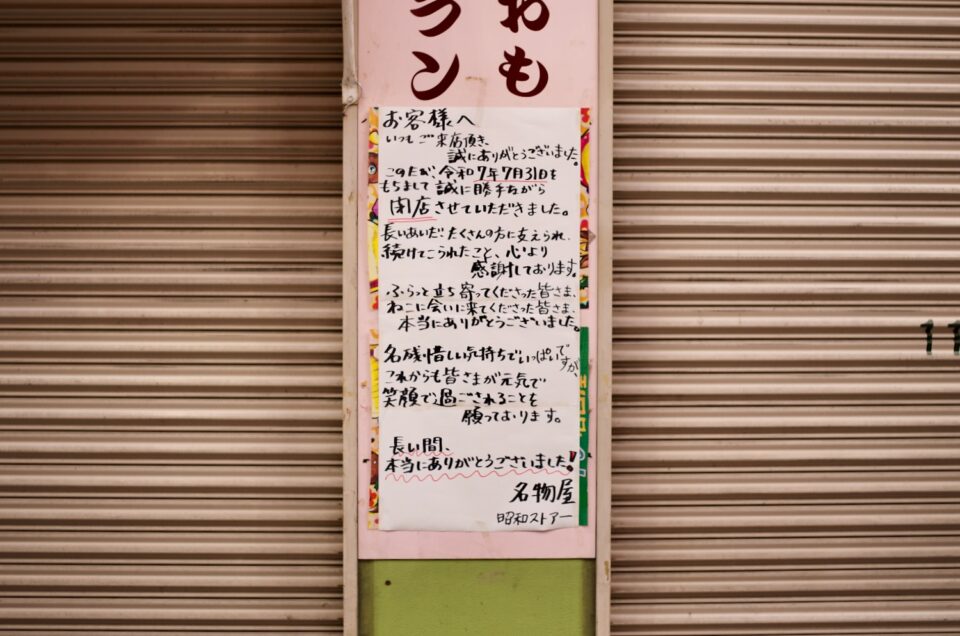 おも
ラン
お客様へ
いつもご来店頂き、
誠にありがとうございました。
このたび、令和7年7月31日を
もちまして誠に勝手ながら
閉店させていただきました。
長いあいだたくさんの方に支えられ、
続けてこられたこと、心より
感謝しております。
ふらっと立ち寄ってくださった皆さま、
ねこに会いに来てくださった皆さま、
本当にありがとうございました。
名残惜しい気持ちでいっぱいですが、
これからも皆さまが元気で
笑顔で過ごされることを
願っております。
長い間、
本当にありがとうございました!
名物屋
昭和ストアー